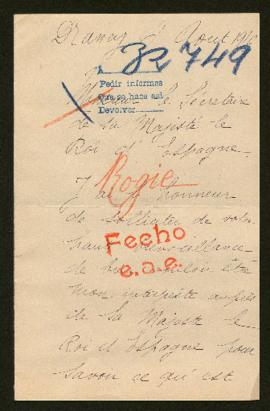 Drancy Aout
32749
Pedir informes
que se hace así
Devolver
Monsieur le Secrétaire
de Sa Majesté le
Roi d'Espagne
Rogie
J'ai l'honneur
de solliciter de votre
haute bienveillance
Fecho
e.a.e.
de bien vouloir être
mon interprète auprès
de Sa Majesté le
Roi d'Espagne pour
savoir ce qu'est